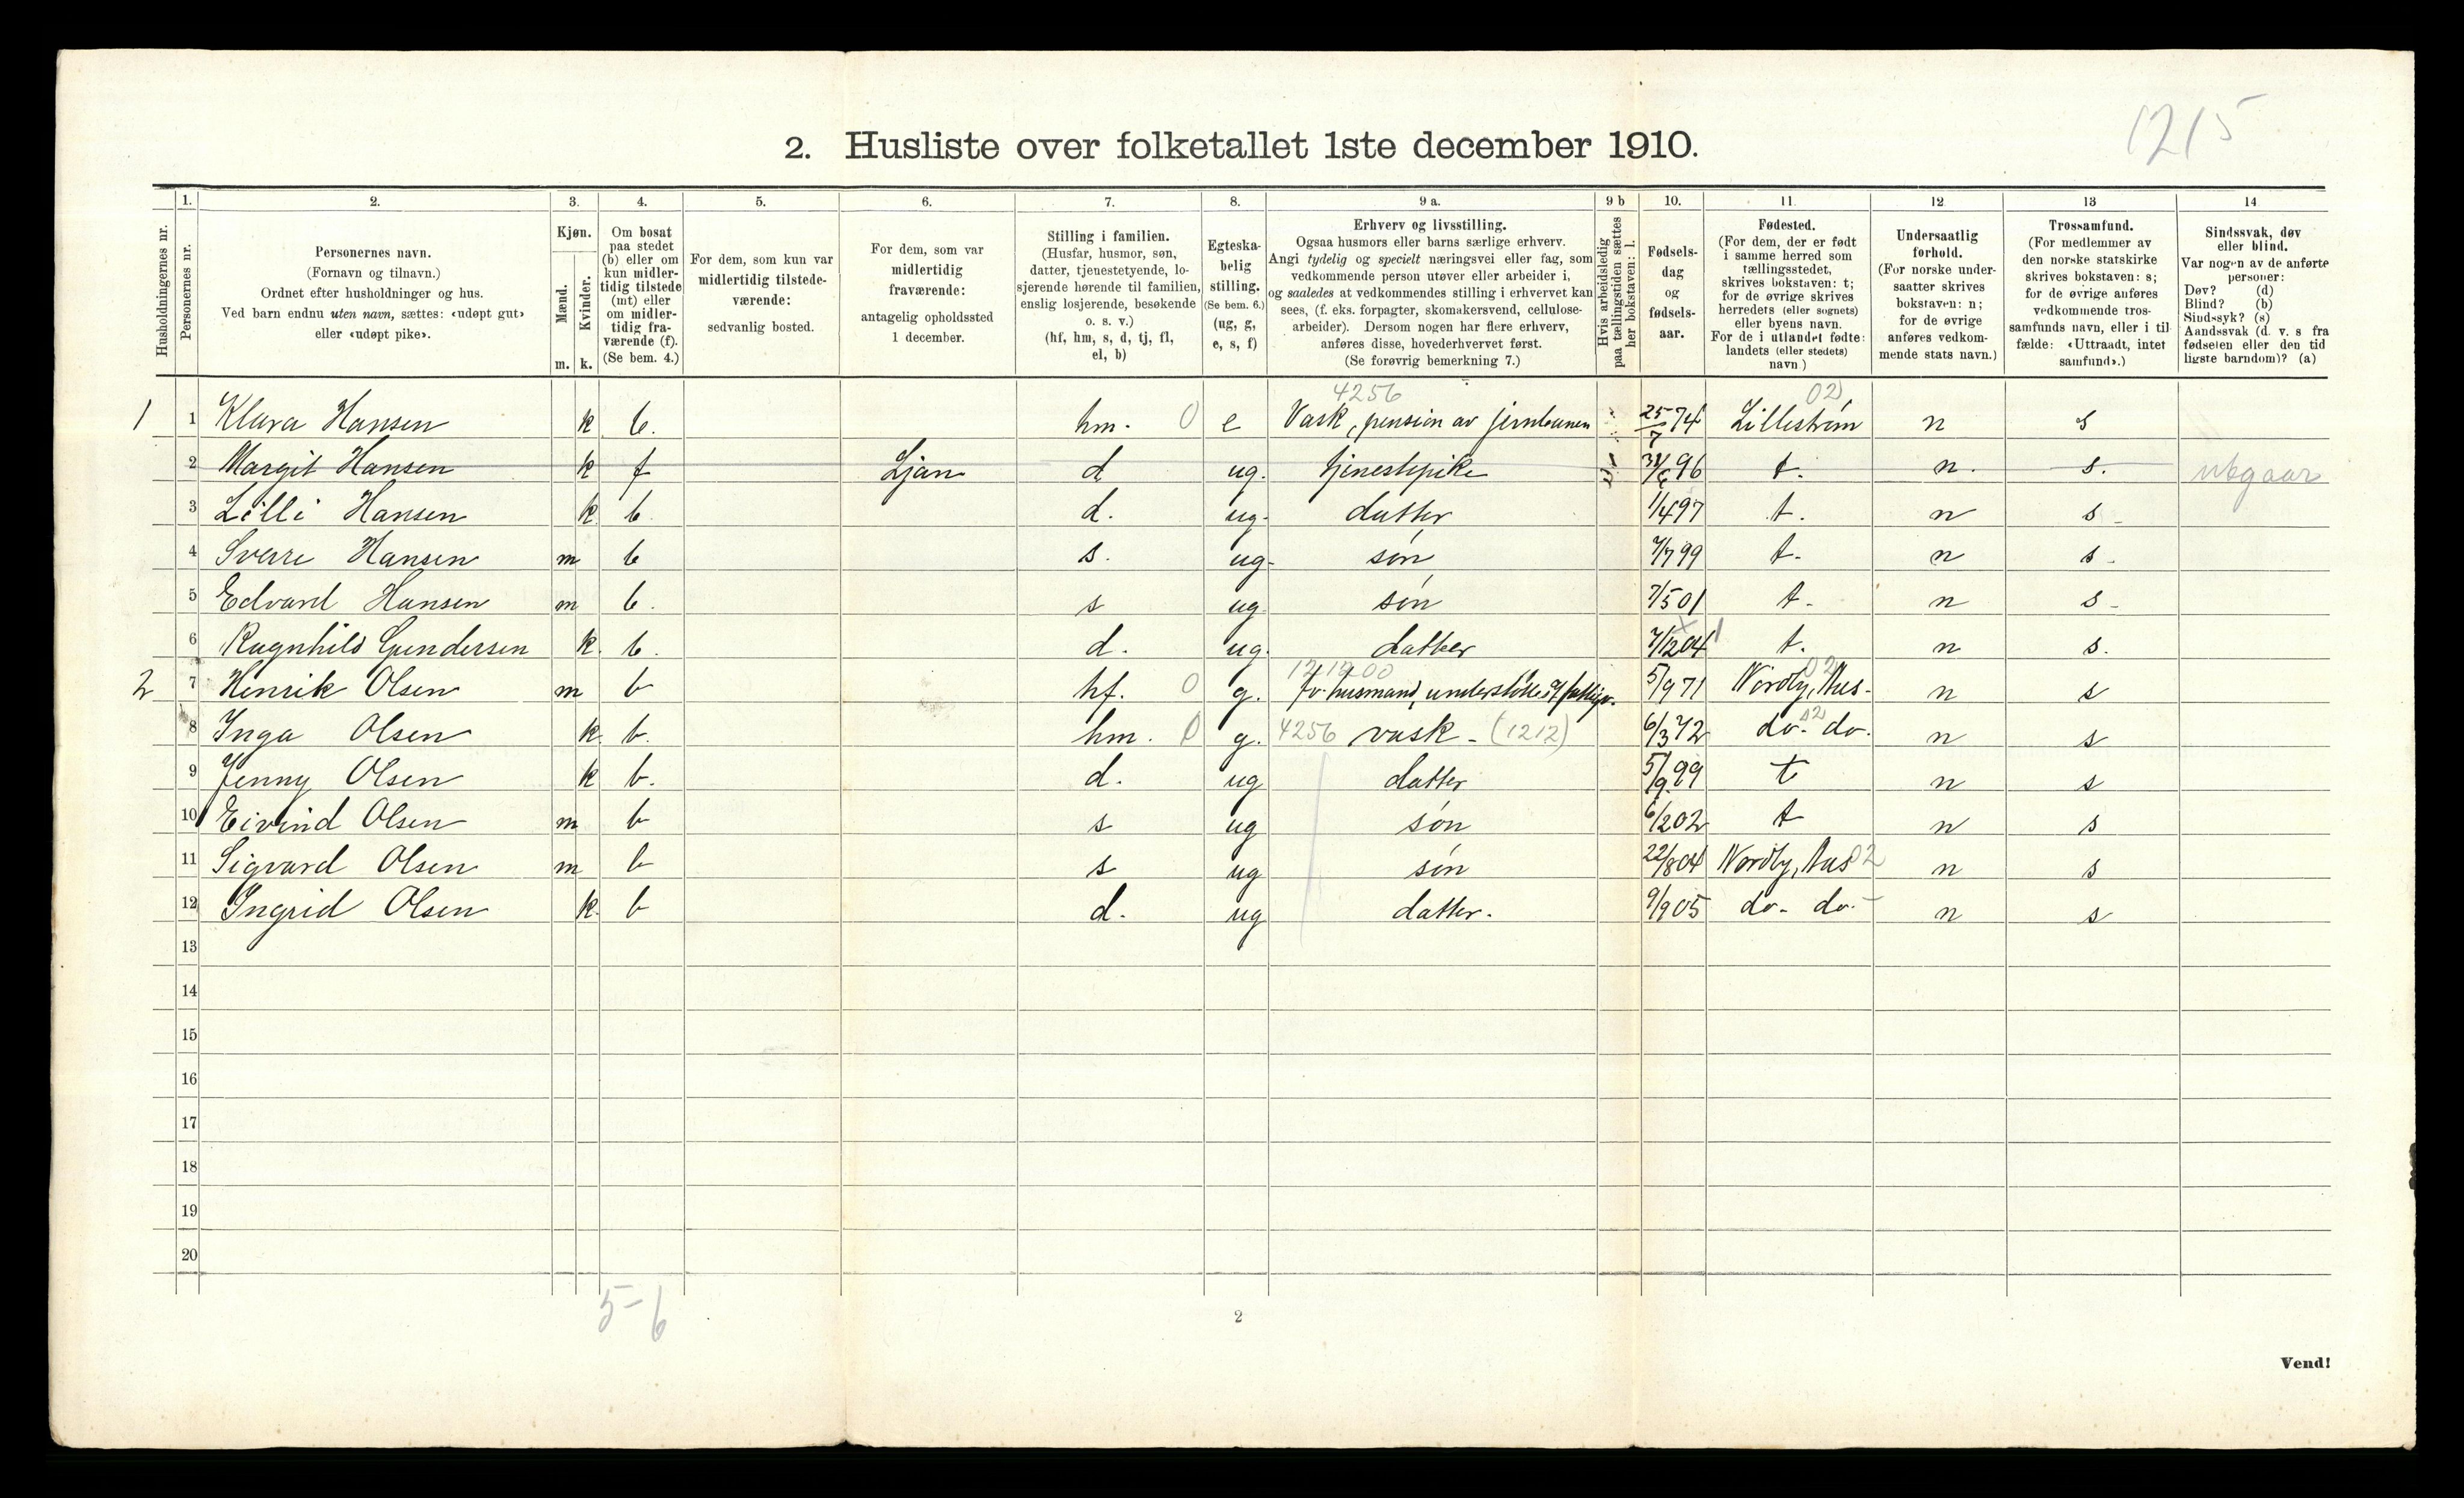 1215
2. Husliste over folketallet 1ste december 1910.
Husholdningernes nr.
1.
Personernes nr.
2.
Personernes navn.
(Fornavn og tilnavn.)
Ordnet efter husholdninger og hus.
Ved barn endnu uten navn, sættes: «udøpt gut»
eller «udøpt pike».
3.
Kjøn.
Mænd.
Kvinder.
m. k.
4.
Om bosat
paa stedet
(b) eller om
kun midler-
tidig tilstede
(mt) eller
om midler-
tidig fra-
værende (f).
(Se bem. 4.)
5.
For dem, som kun var
midlertidig tilstede-
værende:
sedvanlig bosted.
6.
For dem, som var
midlertidig
fraværende:
antagelig opholdssted
1 december.
7.
Stilling i familien.
(Husfar, husmor, søn,
datter, tjenestetyende, lo-
sjerende hørende til familien,
enslig losjerende, besøkende
o. s. v.)
(hf, hm, s, d, tj, fl,
el, b)
8.
Egteska-
belig
stilling.
(Se bem. 6.)
(ug, g,
e, s, f)
9 a.
Erhverv og livsstilling.
Ogsaa husmors eller barns særlige erhverv.
Angi tydelig og specielt næringsvei eller fag, som
vedkommende person utøver eller arbeider i,
og saaledes at vedkommendes stilling i erhvervet kan
sees, (f. eks. forpagter, skomakersvend, cellulose-
arbeider). Dersom nogen har flere erhverv,
anføres disse, hovederhvervet først.
(Se forøvrig bemerkning 7.)
9 b
Hvis arbeidsledig
paa tællingstiden sættes
her bokstaven: l.
10.
Fødsels-
dag
og
fødsels-
aar.
11
Fødested.
(For dem, der er født
i samme herred som
tællingsstedet,
skrives bokstaven: t;
for de øvrige skrives
herredets (eller sognets)
eller byens navn.
For de i utlandet fødte:
landets (eller stedets)
navn.)
12
Undersaatlig
forhold.
(For norske under-
saatter skrives
bokstaven: n;
for de øvrige
anføres vedkom-
mende stats navn.)
13
Trossamfund.
(For medlemmer av
den norske statskirke
skrives bokstaven: s;
for de øvrige anføres
vedkommende tros-
samfunds navn, eller i til
fælde: «Uttraadt, intet
samfund».)
14
Sindssvak, døv
eller blind.
Var nogen av de anførte
personer:
Døv? (d)
Blind? (b)
Sindssyk? (s)
Aandssvak (d. v. s fra
fødselen eller den tid
ligste barndom)? (a)
4256 02
1 1 Klara Hansen k b. hm. 0 e Vask, pension av jernbanen 25/7 74 Lillestrøm n s
2 Margit Hansen k f Ljan d ug. tjenestepike 96 t. n. s. utgaar
3 Lilli Hansen k b d. ug. datter 1/4 97 t. n s
4 Sverre Hansen m b s. ug. søn 7/7 99 t. n s.
5 Edvard Hansen m b. s ug søn 7/5 01 t. n s
6 Ragnhild Gundersen k. b. d. ug. datter 7/12 04 t. n s.
121200 02
2 7 Henrik Olsen m b hf. 0 g. fv. husmand, 5/9 71 Nordby, Aas. n s
8 Inga Olsen k. b. hm. 0 g. 4256 vask - (1212) 6/3 72 do. do. n s
9 Jenny Olsen k b. d. ug datter 5/9 99 t n s
10 Eivind Olsen m b s ug søn 6/2 02 t n s
11 Sigvard Olsen m b s ug søn 22/8 04 Nordby, Aas 02 n s
12 Ingrid Olsen k. b d. ug datter. 9/9 05 do. do. n s
13
14
15
16
17
18
19
20
5-6
2
Vend!